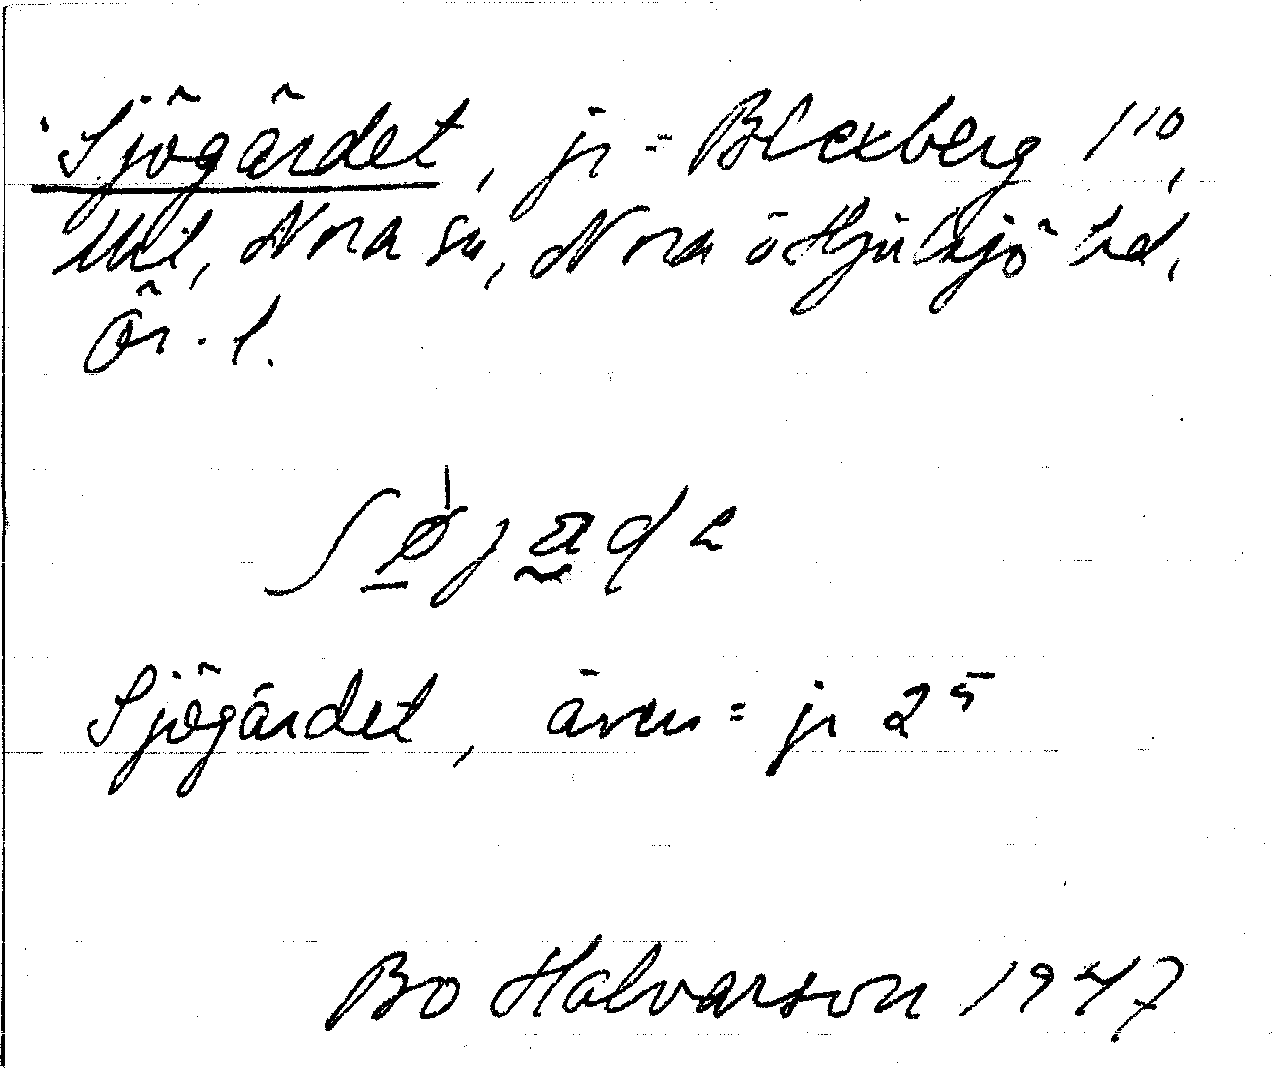 Sjögärdet, jr = Blexberg 1¹⁰,
Uhl, Nora sn, Nora o Hjulsjö hd,
Ör. l.
Sjögärdet, även = jr 2⁵
Bo Halvarson 1947